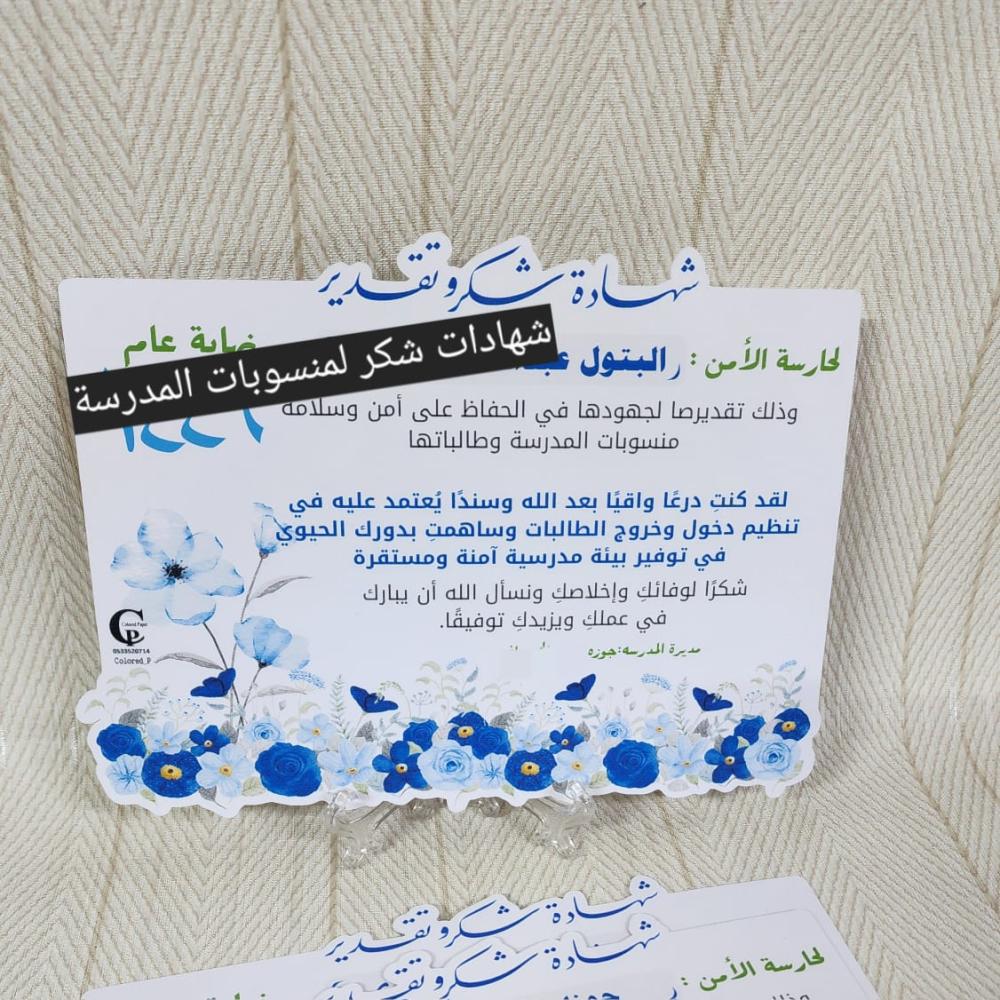 شهادة شكر وتقدير
نهاية عام
شهادات شكر لمنسوبات المدرسة
لحارسة الأمن : البتول
وذلك تقديرصا لجهودها في الحفاظ على أمن وسلامة
منسوبات المدرسة وطالباتها
لقد كنتِ درعًا واقيًا بعد الله وسندًا يُعتمد عليه في
تنظيم دخول وخروج الطالبات وساهمتِ بدورك الحيوي
في توفير بيئة مدرسية آمنة ومستقرة
شكرًا لوفائكِ وإخلاصكِ ونسأل الله أن يبارك
في عملكِ ويزيدكِ توفيقًا.
مديرة المدرسه:جوزه
Colored Paper
CP
0533520714
Colored_P
شهادة شكر وتقدير
شهادة شكر وتقدير
لحارسة الأمن :